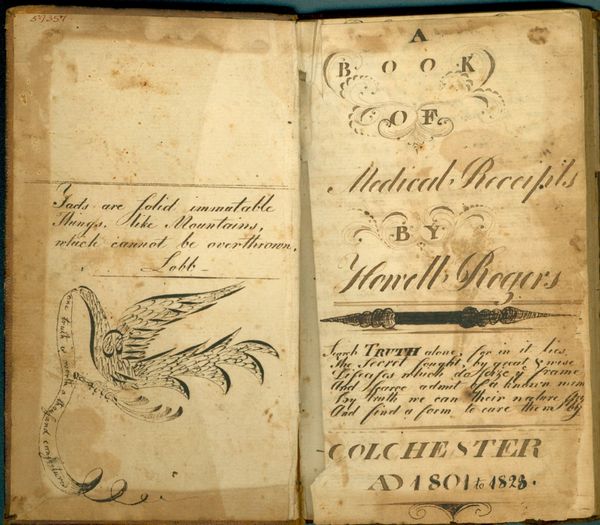 53/357
Facts are solid immutable
Things, like Mountains,
which cannot be overthrown.
Lobb
one truth is worth a thousand conjectures
A
BOOK
OF
Medical Receipts
BY
Howell Rogers
Search TRUTH alone, for in it lies,
The Secret sought, by great & wise
which frame
And scarce admit of a known
By truth we can their nature
And find a form to cure them by
COLCHESTER
AD 1801 to 1823.